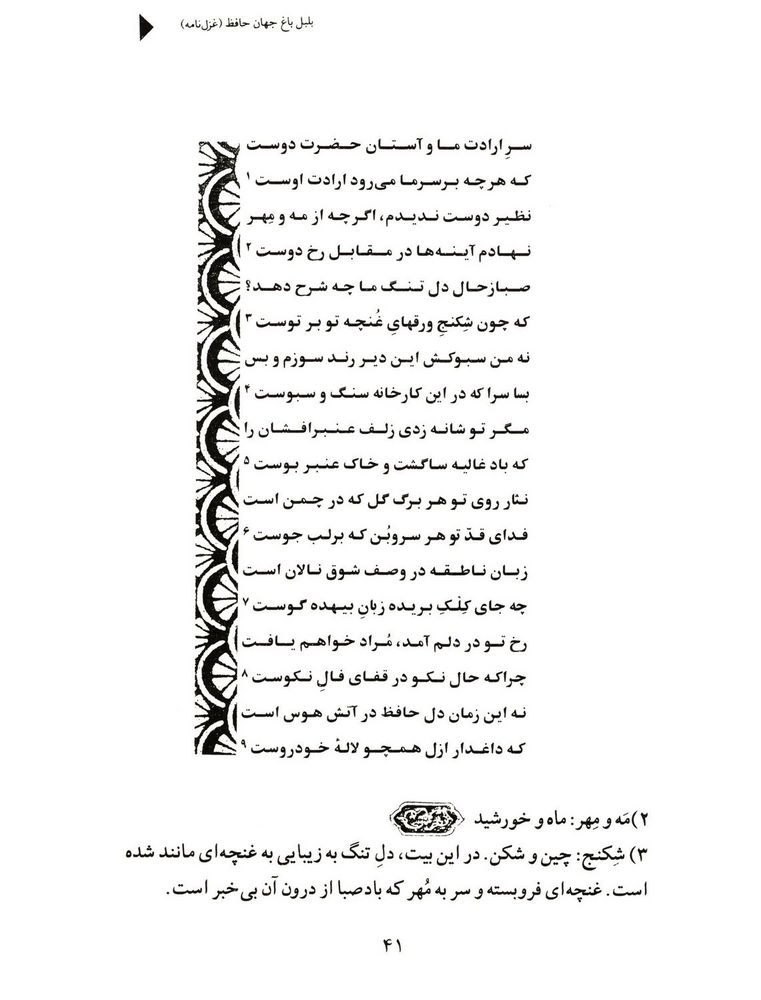 بلبل باغ جهان حافظ (غزل‌نامه)
سرِ ارادت ما و آستان حضرت دوست
که هرچه بر سر ما می‌رود ارادت اوست ۱
نظیر دوست ندیدم، اگرچه از مه و مِهر
نهادم آینه‌ها در مقابل رخ دوست ۲
صبا ز حال دل تنگ ما چه شرح دهد؟
که چون شِکنجِ ورقهایِ غُنچه تو بر توست ۳
نه من سبوکش این دیر رند سوزم و بس
بسا سرا که در این کارخانه سنگ و سبوست ۴
مگر تو شانه زدی زلف عنبرافشان را
که باد غالیه ساگشت و خاک عنبر بوست ۵
نثار روی تو هر برگ گل که در چمن است
فدای قدّ تو هر سروبُن که برلب جوست ۶
زبان ناطقه در وصف شوق نالان است
چه جای کِلْکِ بریده زبانِ بیهده گوست ۷
رخ تو در دلم آمد، مُراد خواهم یافت
چراکه حال نکو در قفای فالِ نکوست ۸
نه این زمان دل حافظ در آتش هوس است
که داغدار ازل همچو لالهٔ خودروست ۹
۲) مَه و مِهر: ماه و خورشید
۳) شِکنج: چین و شکن. در این بیت، دلِ تنگ به زیبایی به غنچه‌ای مانند شده
است. غنچه‌ای فروبسته و سر به مُهر که بادصبا از درون آن بی‌خبر است.
۴۱